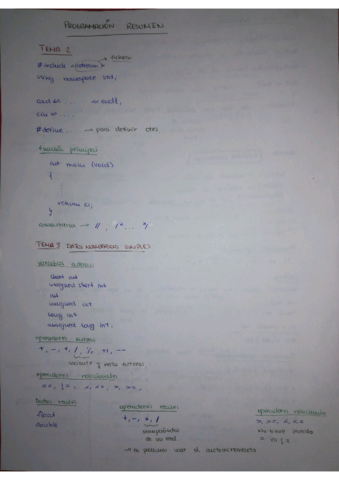 PROGRAMACIÓN RESUMEN
TEMA 2
# include <iostream>
using namespace std;
cout << ... << endl;
cin >> ...
# define ... → para definir ctes
función principal
int main (void)
{
return 0;
}
comentarios → //, /* ... */
TEMA 3 DATOS NUMÉRICOS SIMPLES
variables enteras
short int
unsigned short int
int
unsigned int
long int
unsigned long int;
operadores enteros
+, -, *, /, %, ++, --
cociente y resto enteros
operadores relacionales
Datos reales
float
double
operadores reales
+, -, *, /
de un real
→ no podemos usar el
operadores relacionales
>, >=, <, <=